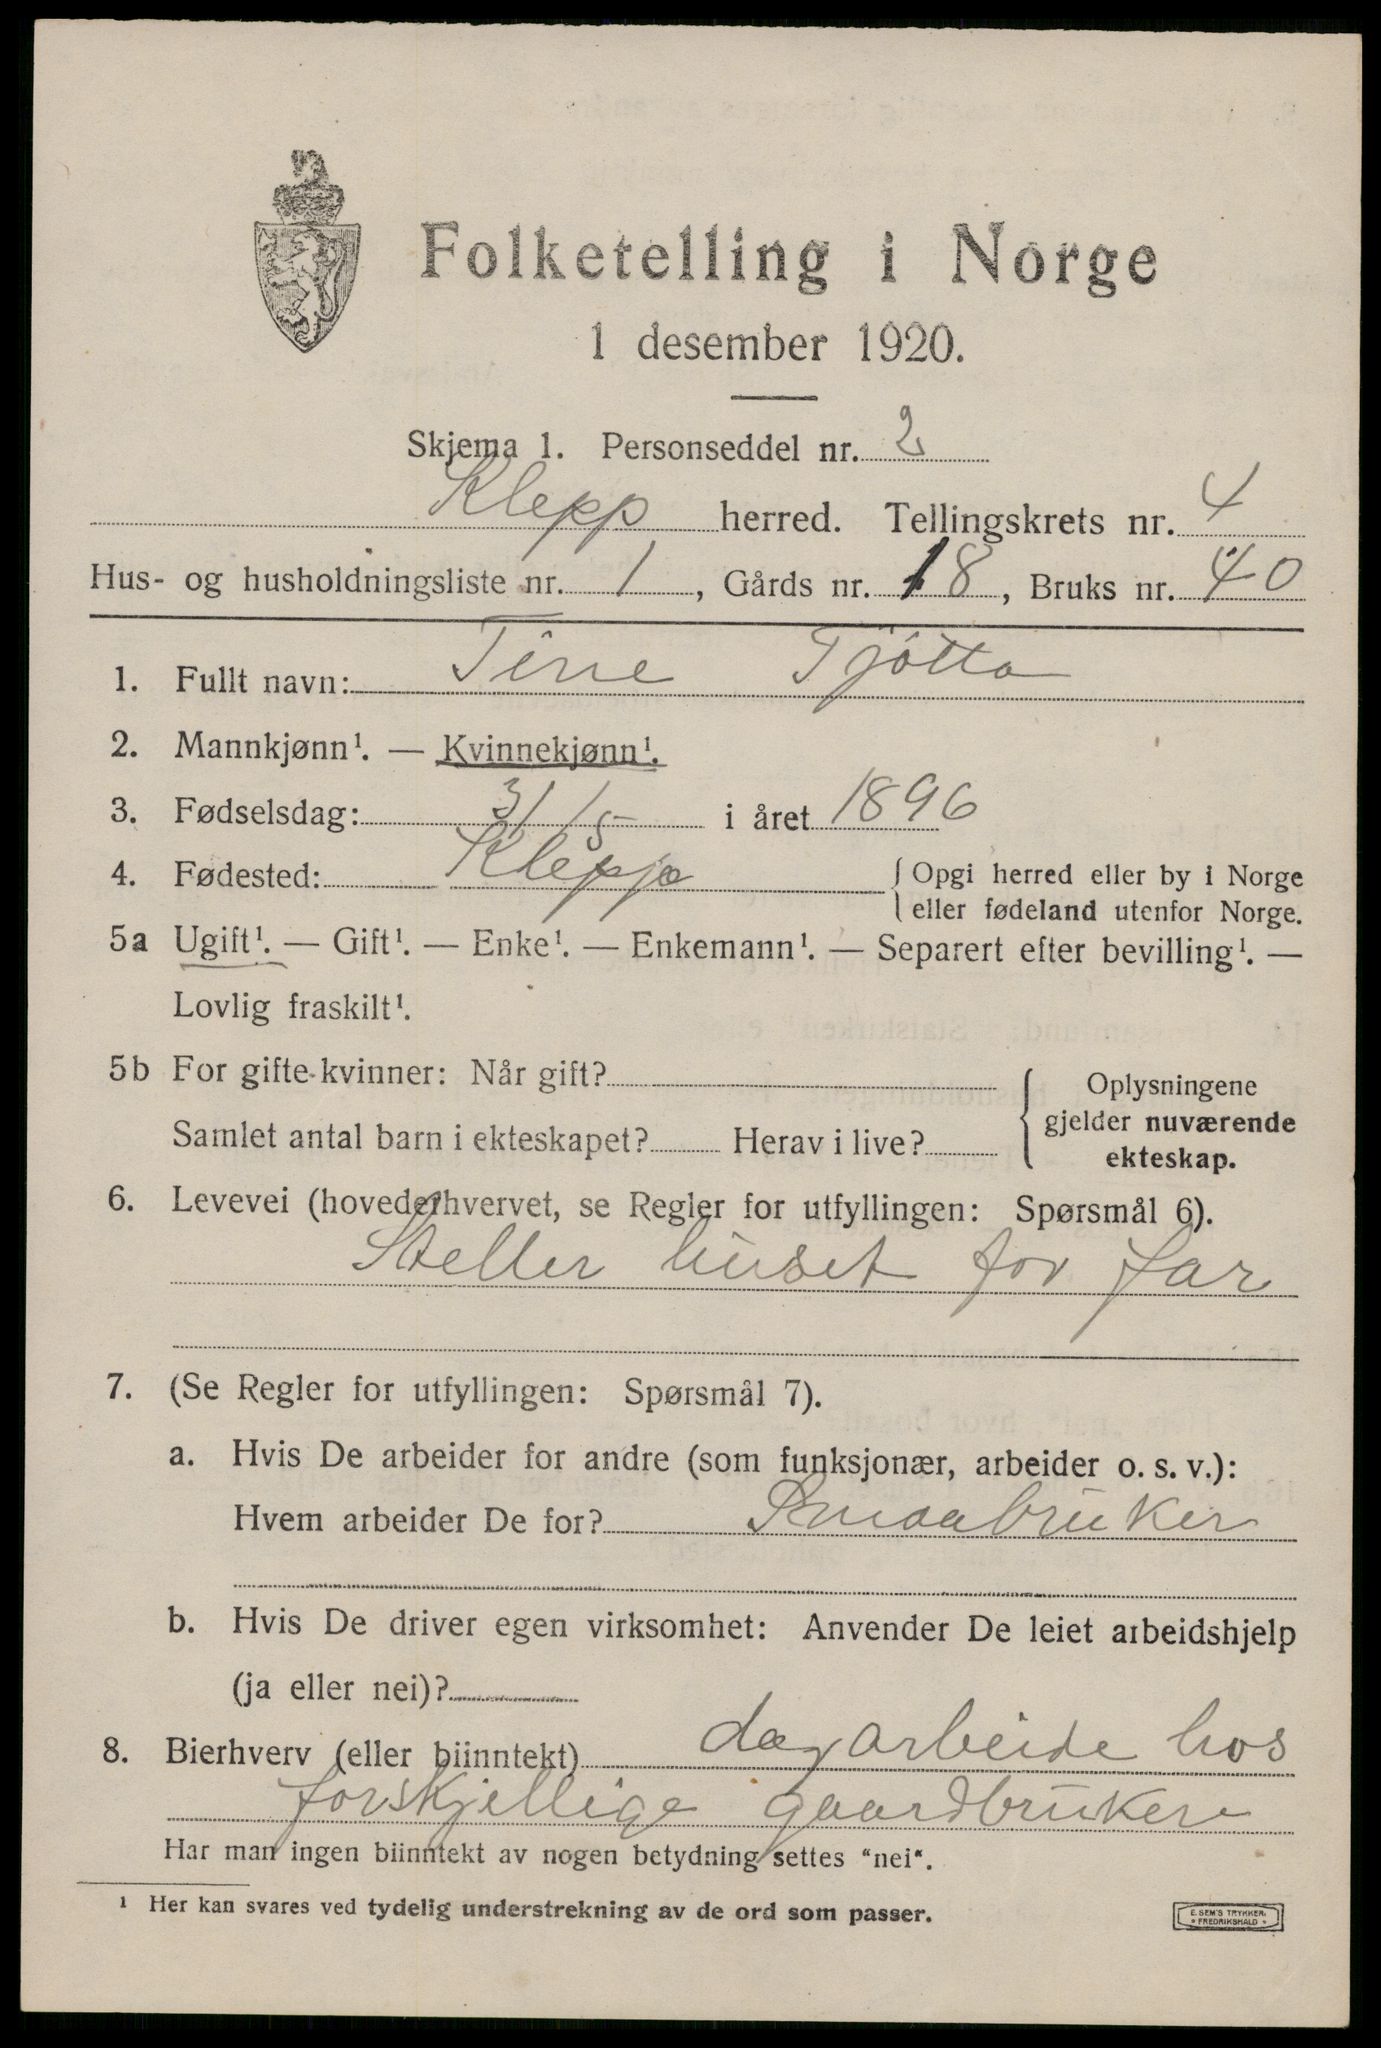 Folketelling i Norge
1 desember 1920.
Skjema 1. Personseddel nr. 2
Klepp herred. Tellingskrets nr. 4
Hus- og husholdningsliste nr. 1, Gårds nr. 18, Bruks nr. 40
1. Fullt navn: Tine Tjótta
2. Mannkjønn¹. — Kvinnekjønn¹.
3. Fødselsdag: 31/5 i året 1896
4. Fødested: Klepp { Opgi herred eller by i Norge
eller fødeland utenfor Norge.
5a Ugift¹. — Gift¹. — Enke¹. — Enkemann¹. — Separert efter bevilling¹. —
Lovlig fraskilt¹.
5b For gifte kvinner: Når gift?
Samlet antal barn i ekteskapet? Herav i live?
{ Oplysningene
gjelder nuværende
ekteskap.
6. Levevei (hovederhvervet, se Regler for utfyllingen: Spørsmål 6).
Steller huset for far
7. (Se Regler for utfyllingen: Spørsmål 7).
a. Hvis De arbeider for andre (som funksjonær, arbeider o. s. v.):
Hvem arbeider De for? Smaabruker
b. Hvis De driver egen virksomhet: Anvender De leiet arbeidshjelp
(ja eller nei)?
8. Bierhverv (eller biinntekt) dagarbeide hos
forskjellige gaardbrukere
Har man ingen biinntekt av nogen betydning settes "nei".
¹ Her kan svares ved tydelig understrekning av de ord som passer.
E. SEM'S TRYKKERI
• FREDRIKSHALD •